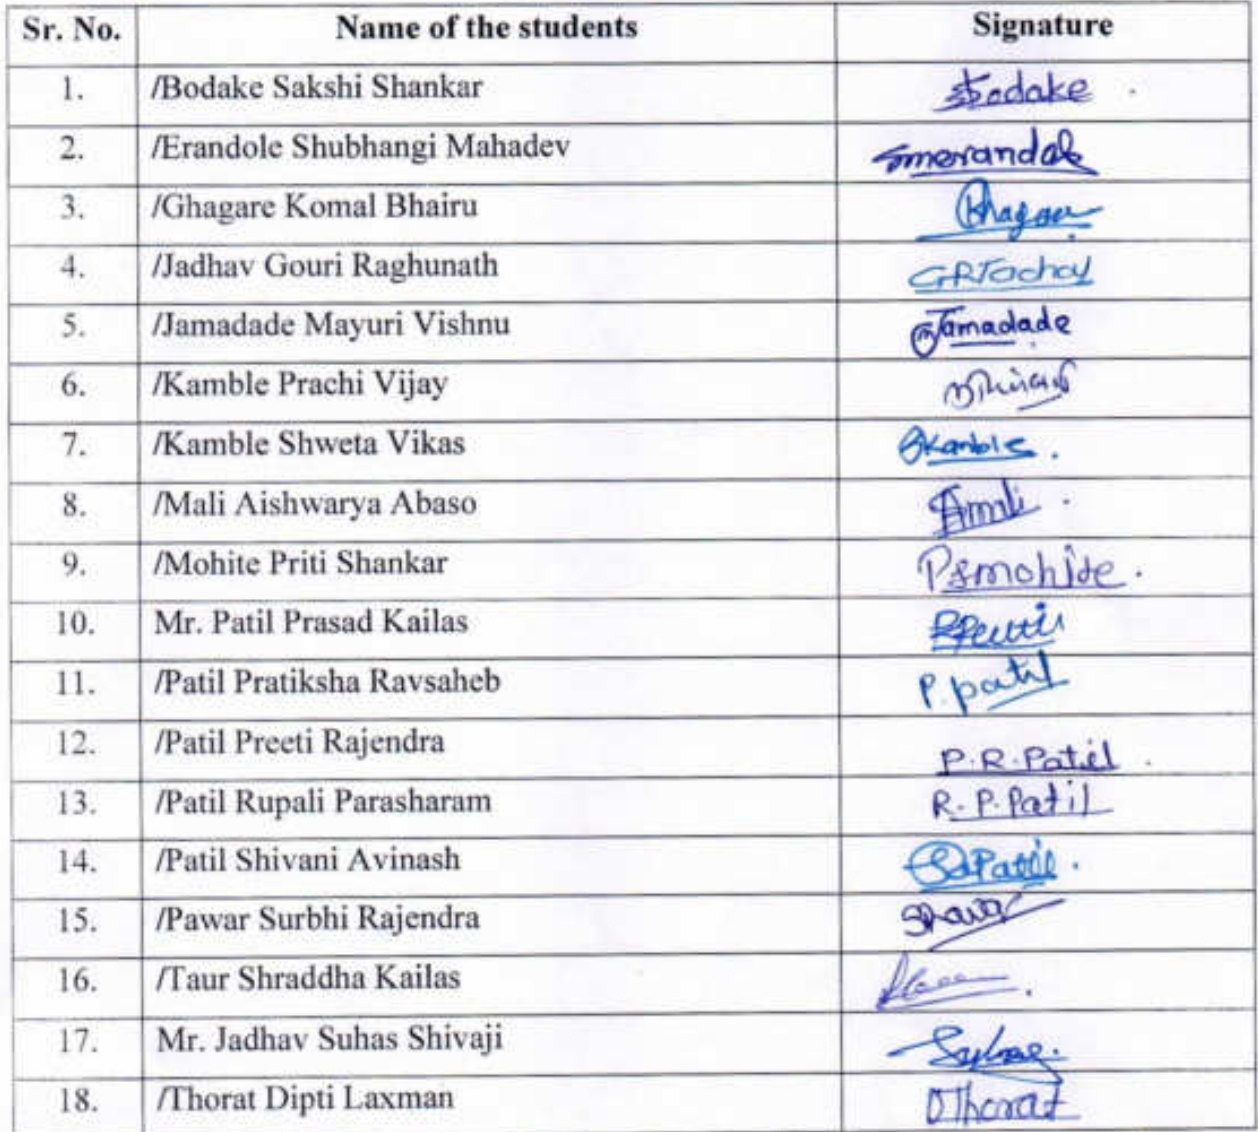 Sr. No. Name of the students Signature
1. /Bodake Sakshi Shankar Bodake
2. /Erandole Shubhangi Mahadev
3. /Ghagare Komal Bhairu
4. /Jadhav Gouri Raghunath GRJadhav
5. /Jamadade Mayuri Vishnu Jamadade
6. /Kamble Prachi Vijay
7. /Kamble Shweta Vikas SKamble.
8. /Mali Aishwarya Abaso Amali.
9. /Mohite Priti Shankar Psmohite.
10. Mr. Patil Prasad Kailas
11. /Patil Pratiksha Ravsaheb P. patil
12. /Patil Preeti Rajendra P.R.Patil.
13. /Patil Rupali Parasharam R.P.Patil
14. /Patil Shivani Avinash SAPatil.
15. /Pawar Surbhi Rajendra
16. /Taur Shraddha Kailas
17. Mr. Jadhav Suhas Shivaji
18. /Thorat Dipti Laxman DThorat